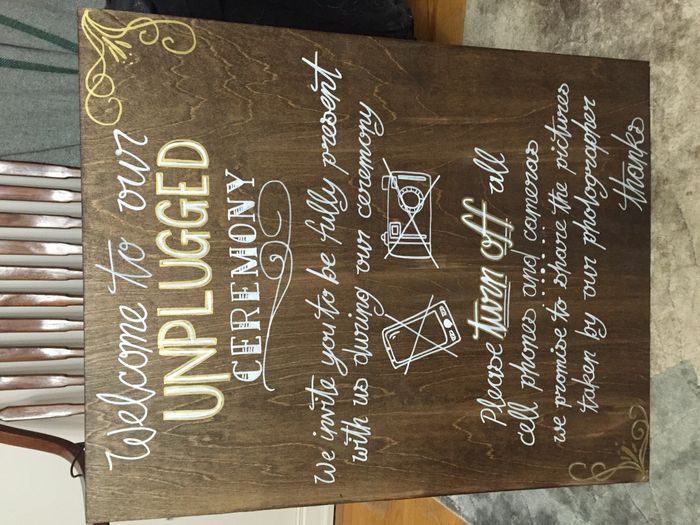 Welcome to our
UNPLUGGED
CEREMONY
We invite you to be fully present
with us during our ceremony
Please turn off all
cell phones and cameras
we promise to share the pictures
taken by our photographer
thanks